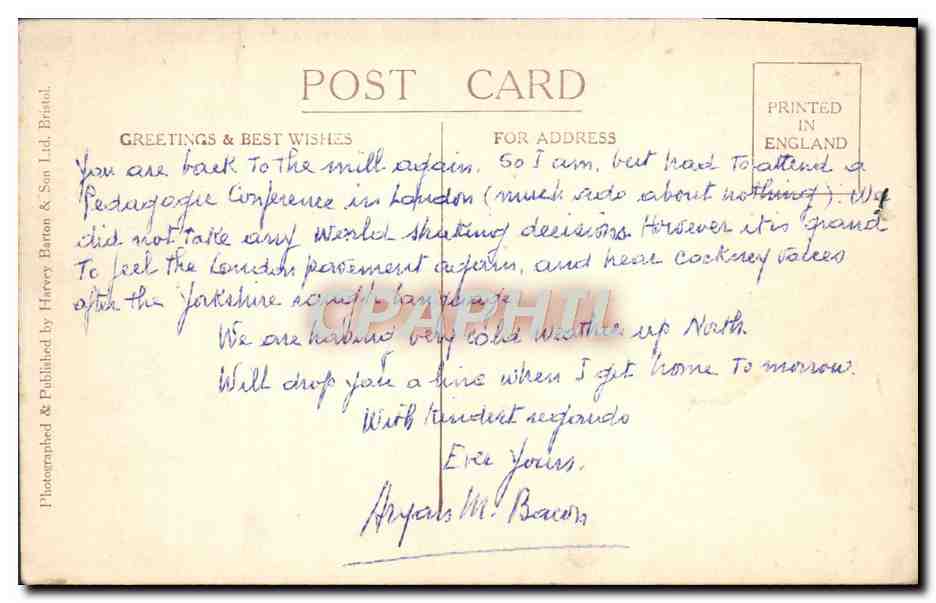 POST CARD
GREETINGS & BEST WISHES
FOR ADDRESS
PRINTED
IN
ENGLAND
Photographed & Published by Harvey Barton & Son Ltd, Bristol.
You are back to the mill again. So I am, but had to attend a
Pedagogic Conference in London (much ado about nothing). We
did not take any World shaking decisions. However it is grand
To feel the London pavement again, and hear Cockney voices
after the Yorkshire rough language
We are having very cold weather up North
Will drop you a line when I get home to morrow.
With kindest regards
Ever Yours.
M. Bacon
CPAPHIL